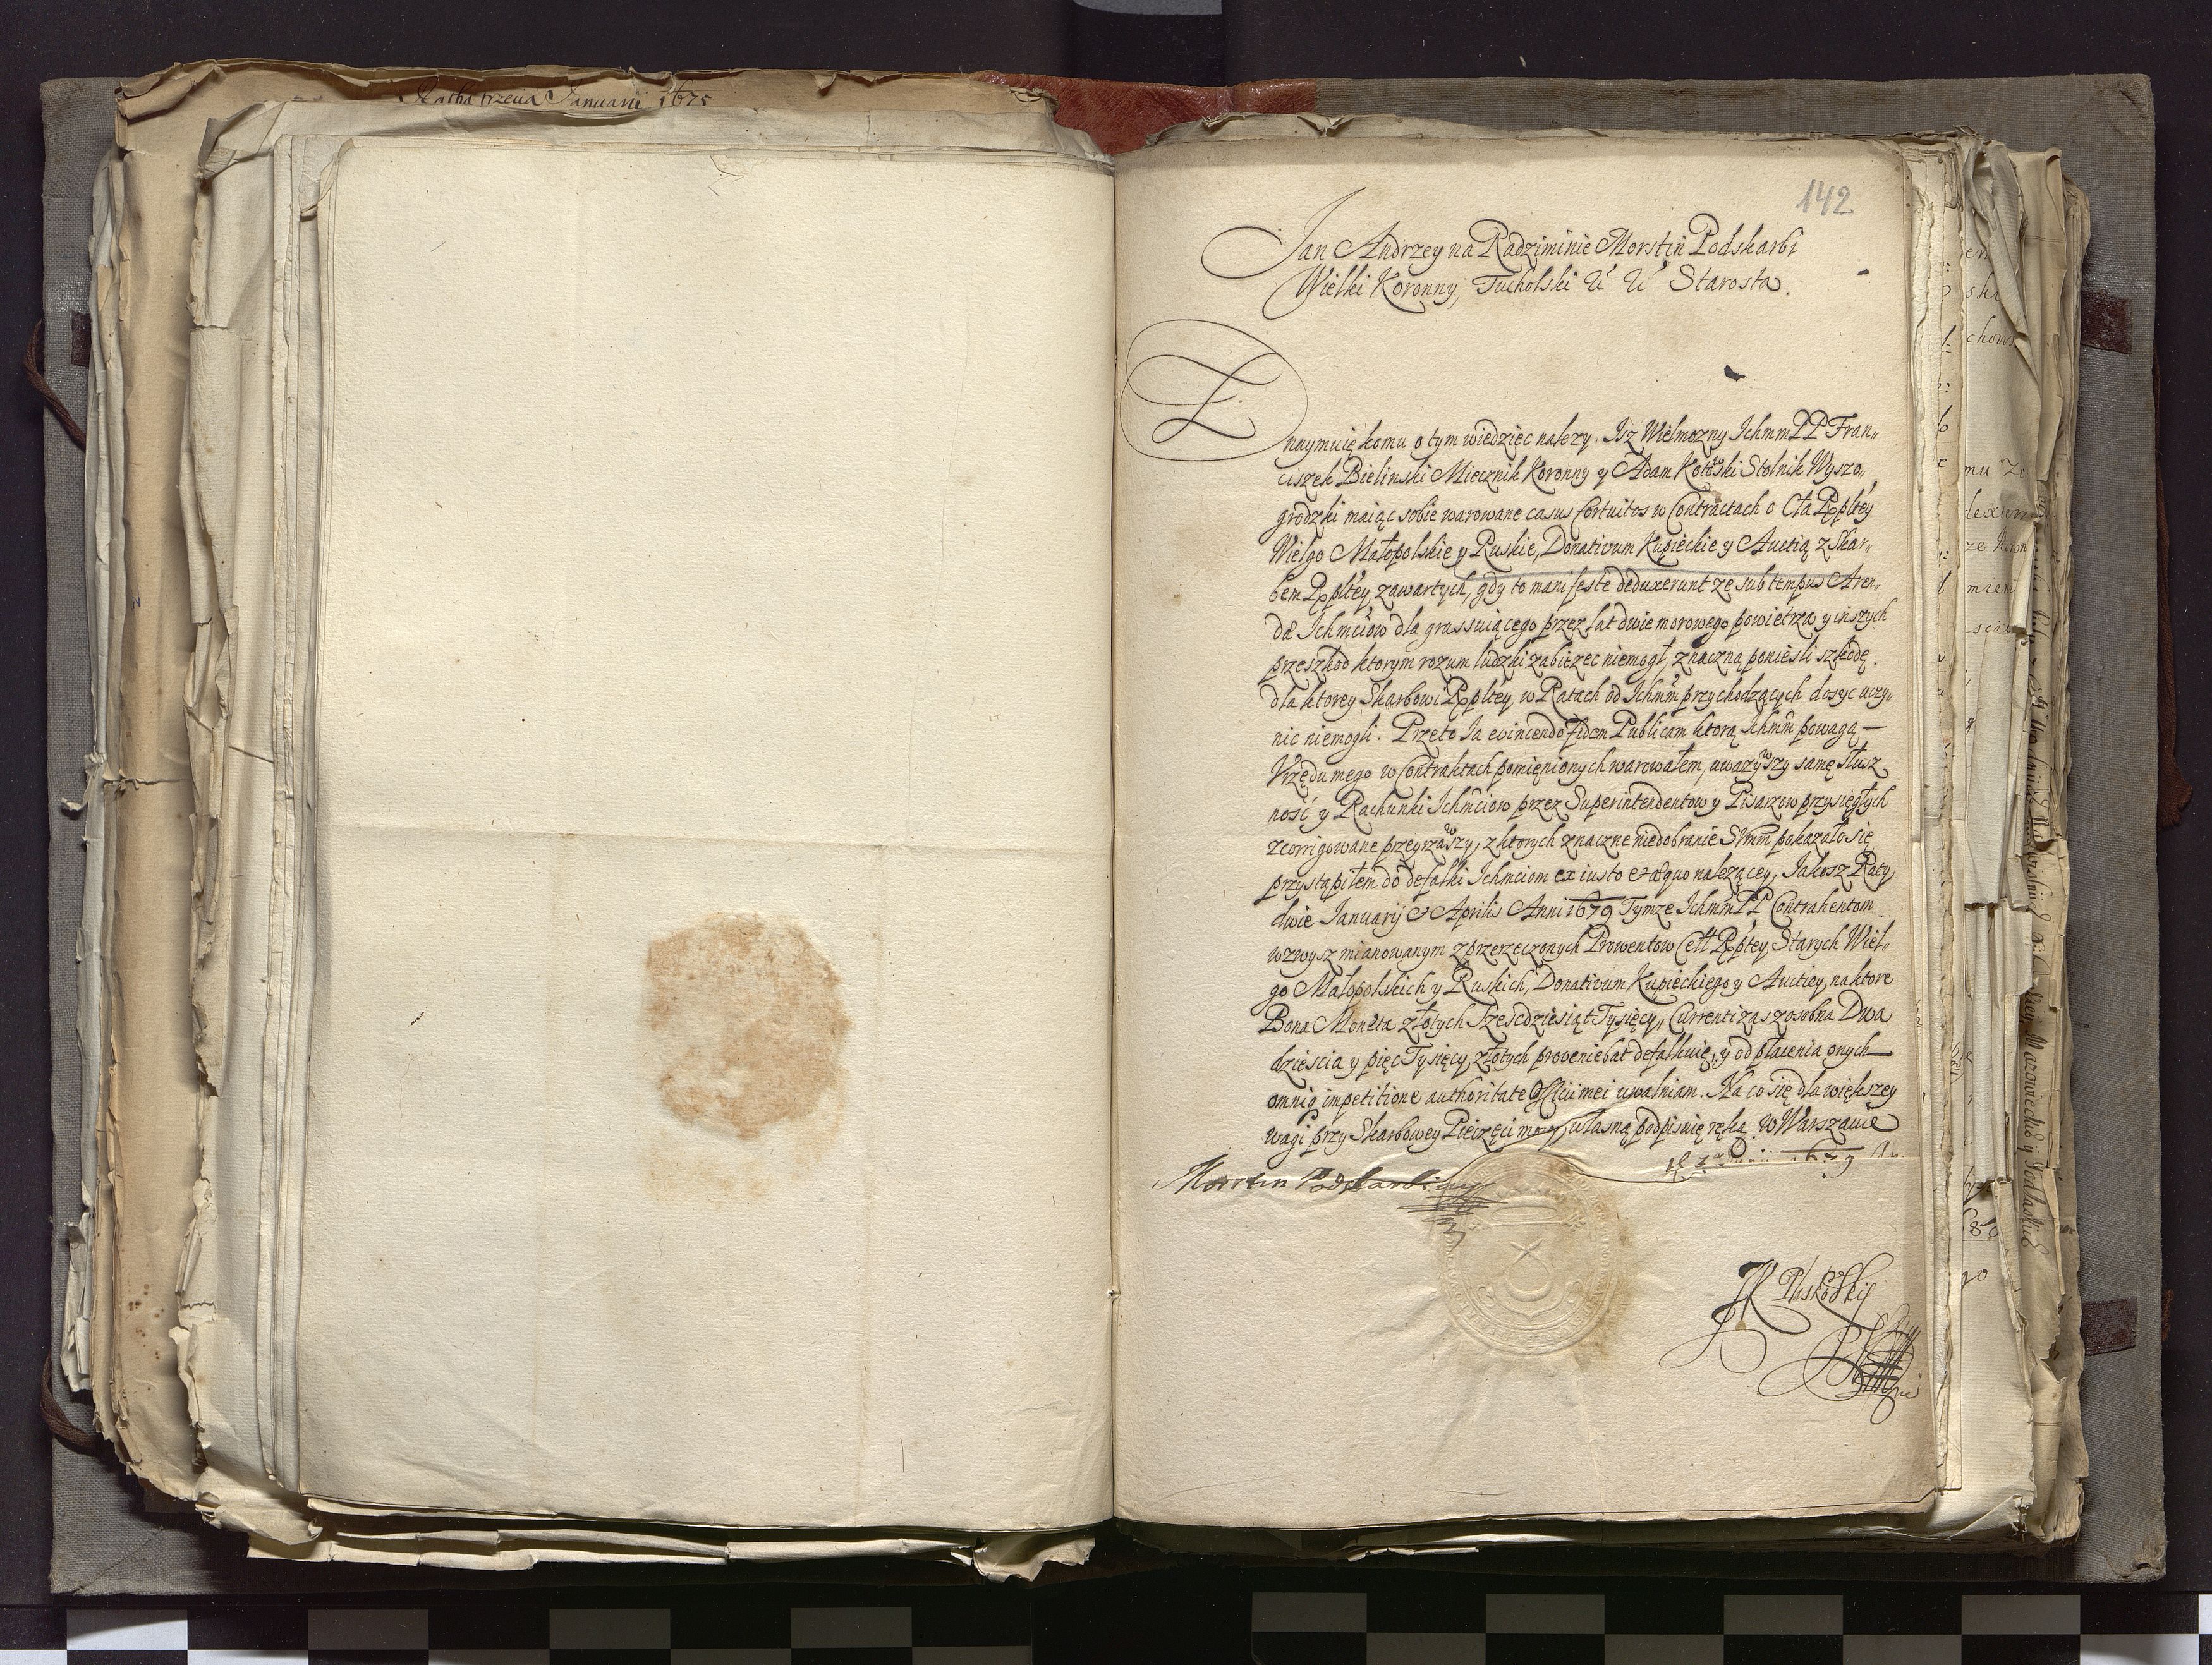 Ratha trzecia Januarii 1675
142
Jan Andrzey na Radziminie Morstin Podskarbi
Wielki Koronny, Tucholski &c &c Starosta.
Znaymuię komu o tym wiedziec nalezy. Isz Wielmozny Ichmm PP Fran„
ciszek Bielinski Miecznik Koronny y Adam Kotowski Stolnik Wyszo„
grodzki maiąc sobie warowane casus fortuitos w Contractach o Cła Rpltey
Wielgo Małopolskie y Ruskie, Donativum Kupieckie y Auctią z Skar„
bem Rpltey, zawartych, gdy to manifeste deduxerunt ze sub tempus Aren„
dȩ Ichmciow dla grassuiącego przez lat dwie morowego powietrza y inszych
przeszkod ktorym rozum ludzki zabiezec niemogł, znaczną poniesli szkodę.
dla ktorey Skarbowi Rpltey, w Ratach od Ichmm przychodzących dosyc uczy„
nic niemogli. Przeto Ia evincendo fidem Publicam ktorą Ichmm powagą —
Vrzędu mego w Contraktach pomięnionych warowałem, uwazywszy samę słusz
ność y Rachunki Ichmciow przez Superintendentow y Pisarzow przysięgłych
zcorrigowane przeyrzawszy, z ktorych znaczne niedobranie Summ pokazało się
przystąpiłem do defalki Ichmciom ex iusto et æquo nalezącey, Iakosz Raty
dwie Ianuarij & Aprilis Anni 1679 Tymze Ichmm PP Contrahentom
wzwysz mianowanym z przerzeczonych Prowentow Cełł Rpltey Starych Wiel„
go Małopolskich y Ruskich, Donativum Kupieckiego y Auctiey, na ktore
Bona Moneta złotych Szescdziesiąt Tysięcy, Currenti zas zosobna Dwa
dziescia y pięc Tysięcy złotych proveniebat defalkuię, y od płacenia onych
omni impetitione authoritate Officii mei uwalniam. Na co się dla większey
wagi przy Skarbowey Pieczęci moiey, własną podpisuię ręką. w Warszawie
1679
Morstin Podskarbi
JK Pluskowski